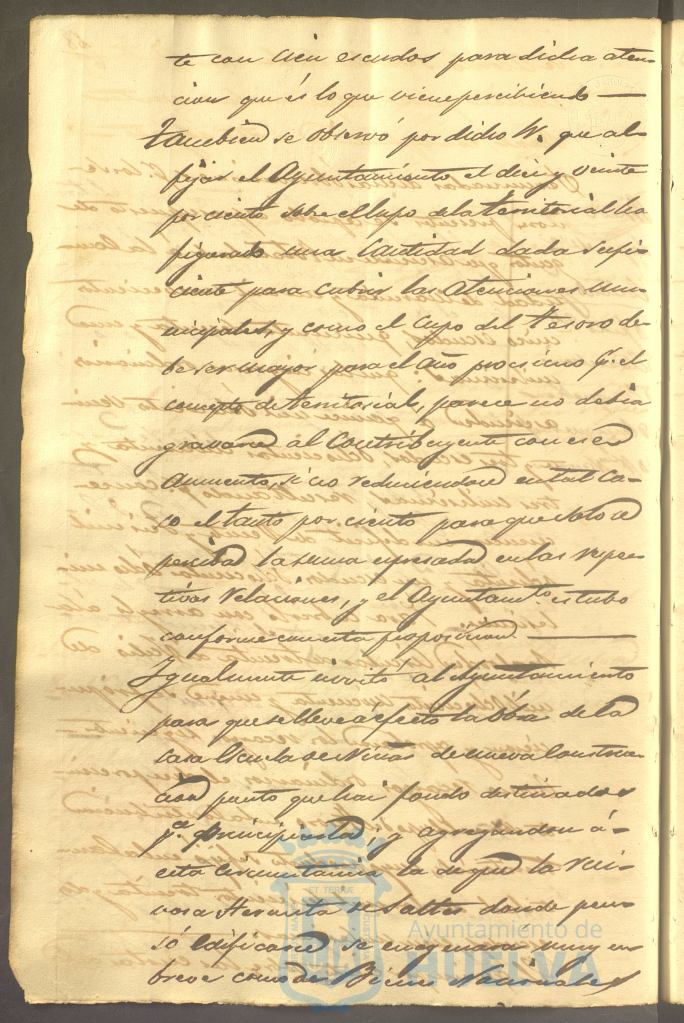 te con cien escudos para dicha aten-
cion que és lo que viene percibiendo —
Tambien se observó por dicho Sr. que al
fijar el Ayuntamiento el diez y veinte
por ciento sobre el cupo de la territorial ha
figurado una Cantidad dada sufi-
ciente para cubrir las atenciones mu-
nicipales, y como el cupo del tesoro de-
be ser mayor para el año procsimo pr. el
concepto de territorial, parece no debia
gravarse al Contribuyente con ese
aumento, si no reduciendose en tal ca-
so el tanto por ciento para que solo se
perciba la suma espresada en las respec-
tivas relaciones, y el Ayuntamto. estubo
conforme con esta proposicion. —
Ygualmente invitó al Ayuntamiento
para que se lleve a efecto la obra de la
casa Escuela de Niñas de nueva Construc-
cion puesto que hai fondo destinados
pa. principiarla; y agregandose á
esta circunstancia la de que la
Hermita de Saltes donde pen-
só edificarse se enagenara muy en
breve como de Bienes Nacionales
Ayuntamiento de
HUELVA